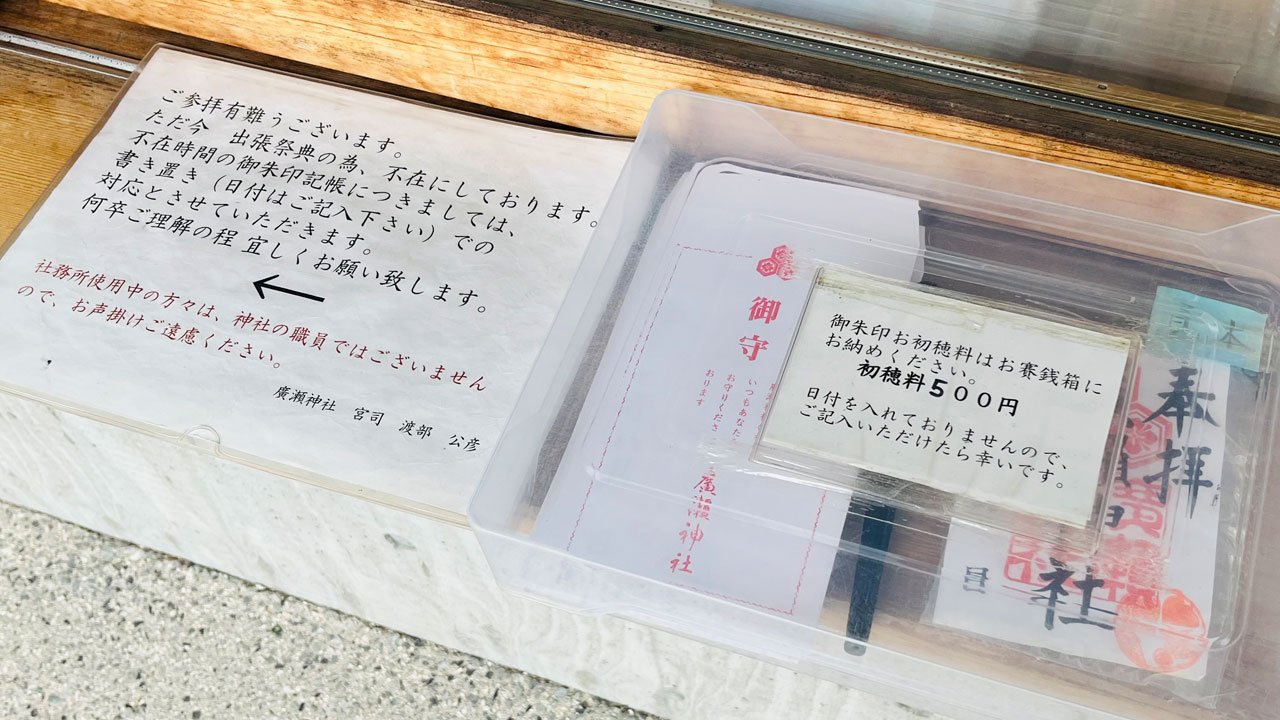 ご参拝有難うございます。
ただ今　出張祭典の為、不在にしております。
不在時間の御朱印記帳につきましては、
書き置き（日付はご記入下さい）での
対応とさせていただきます。
何卒ご理解の程 宜しくお願い致します。
←
社務所使用中の方々は、神社の職員ではございません
ので、お声掛けご遠慮ください。
廣瀬神社　宮司　渡部　公彦
御守
いつもあなた
お守りくださ
おります
廣瀬神社
御朱印お初穂料はお賽銭箱に
お納めください。
初穂料５００円
日付を入れておりませんので、
ご記入いただけたら幸いです。
本
奉拝
社
日